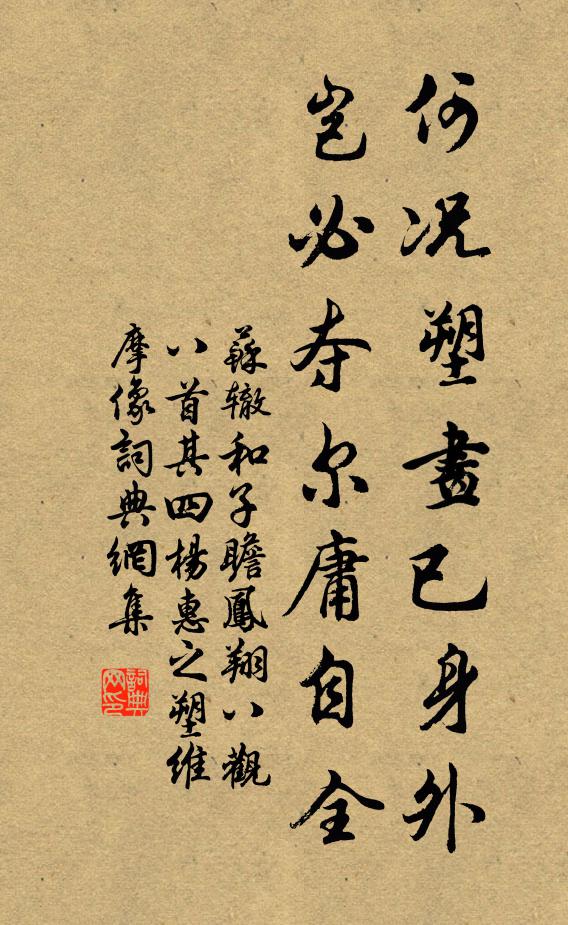 何況塑畫已身外
豈必夺尔庸自全
蘇辙和子瞻鳳翔八觀
八首其四楊惠之塑維
摩像詞典網集
詞典
网印